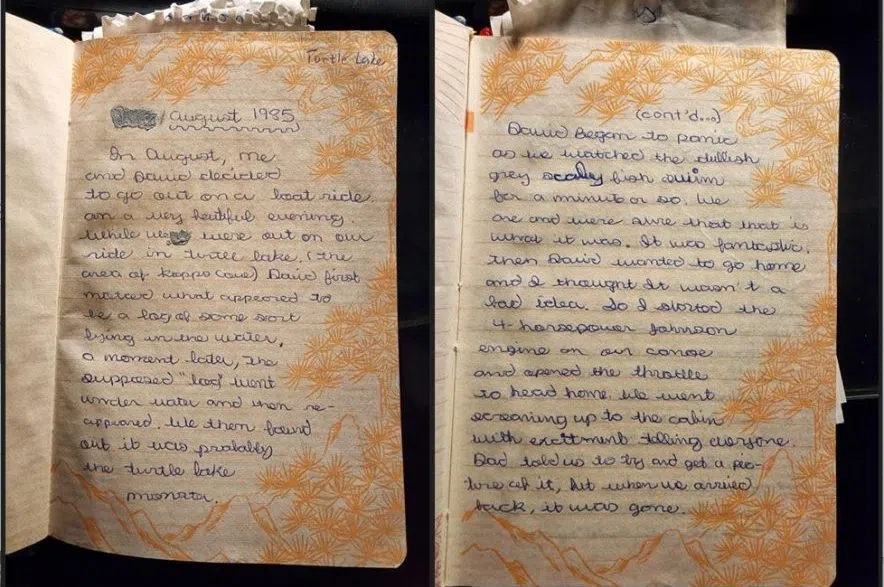 Turtle Lake
August 1985
In August, me
and David decided
to go out on a boat ride
on a very beutiful evening.
While we were out on our
ride in turtle lake, (the
area of Kopps Cove) David first
noticed what appeared to
be a log of some sort
lying in the water,
a moment later, the
supposed "log" went
under water and then re-
appeared. We then found
out it was probably
the turtle lake
monster.
(cont'd...)
David Began to panic
as we watched the dullish
grey scaley fish swim
for a minute or so. We
are and were sure that that is
what it was. It was fantastic.
then David wanted to go home
and I thought It wasn't a
bad idea. So I started the
4-horsepower Johnson
engine on our canoe
and opened the throttle
to head home. We went
screaming up to the cabin
with excitment telling everyone.
Dad told us to try and get a pic-
ture of it, but when we arrived
back, it was gone.